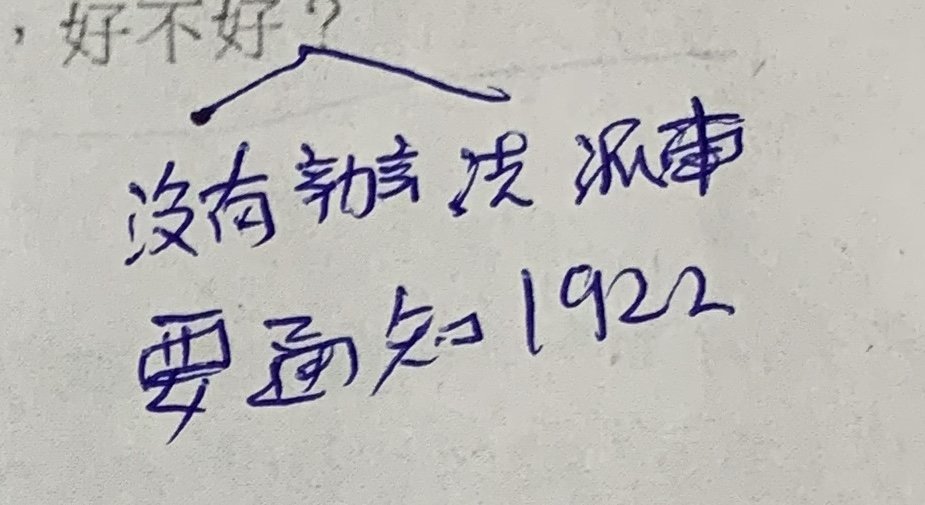 ，好不好？
沒有辦法派車
要通知1922